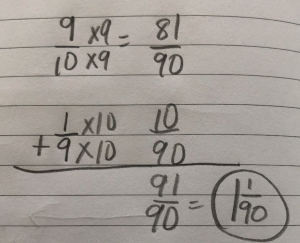 9/10 ×9/×9 = 81/90
+ 1/9 ×10/×10 10/90
91/90 = 1 1/90